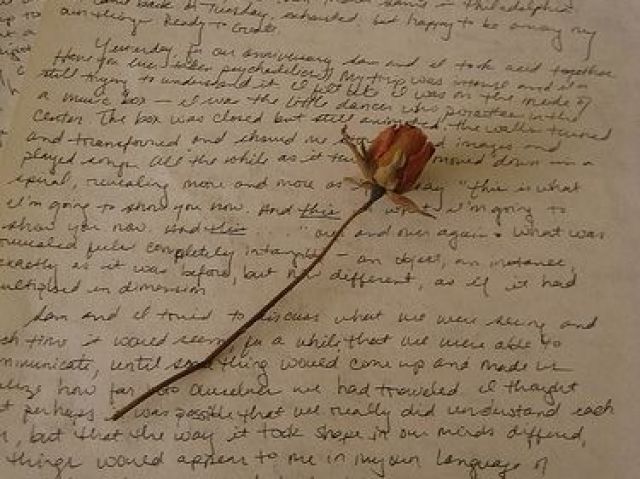 came back on Tuesday, exhausted, but happy to be among my
own things. Ready to create.
Yesterday, for our anniversary Sam and I took acid together.
Have you ever taken psychedelics? My trip was intense and I'm
still trying to understand it. I felt like I was on the inside of
a music box — I was the little dancer who pirouettes in the
center. The box was closed but still animated, the walls turned
and transformed and showed me images and
played songs. All the while as it moved down in a
spiral, revealing more and more as "this is what
I'm going to show you now. And this is what I'm going to
show you now. And this " over and over again. What was
revealed felt completely intangible — an object, an instance,
exactly as it was before, but now different, as if it had
multiplied in dimension
Sam and I tried to discuss what we were seeing and
each time it would seem for a while that we were able to
communicate, until something would come up and made us
realize how far into ourselves we had traveled. I thought
that perhaps it was possible that we really did understand each
, but that the way it took shape in our minds differed,
things would appear to me in my own language of